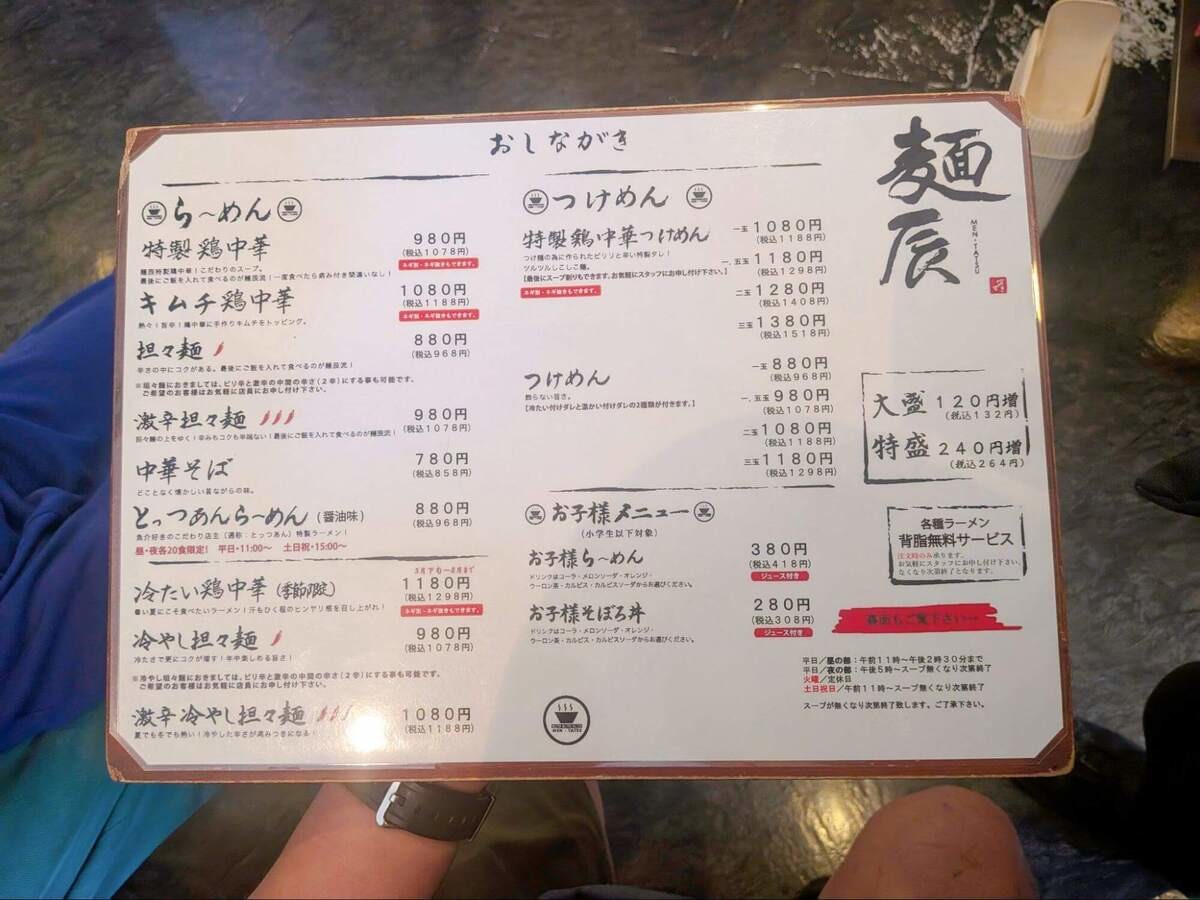 おしながき
ら～めん
特製鶏中華
980円
(税込1078円)
麺辰特製鶏中華！こだわりのスープ。
最後にご飯を入れて食べるのが麺辰流！一度食べたら病み付き間違いなし！
ネギ別・ネギ抜きもできます。
キムチ鶏中華
1080円
(税込1188円)
熱々！旨辛！鶏中華に手作りキムチをトッピング。
ネギ別・ネギ抜きもできます。
担々麺
880円
(税込968円)
辛さの中にコクがある。最後にご飯を入れて食べるのが麺辰流！
※坦々麺におきましては、ピリ辛と激辛の中間の辛さ(2辛)にする事も可能です。
ご希望のお客様はお気軽に店員にお申し付け下さい。
激辛担々麺
980円
(税込1078円)
担々麺の上をゆく！辛みもコクも半端ない！最後にご飯を入れて食べるのが麺辰流！
中華そば
780円
(税込858円)
どことなく懐かしい昔ながらの味。
とっつあんら～めん(醤油味)
880円
(税込968円)
魚介好きのこだわり店主(通称：とっつあん)特製ラーメン！
昼・夜各20食限定！ 平日・11:00～ 土日祝・15:00～
冷たい鶏中華(季節限定)
1180円
(税込1298円)
暑い夏にこそ食べたいラーメン！汗もひく程のヒンヤリ感を召し上がれ！
ネギ別・ネギ抜きもできます。
冷やし担々麺
980円
(税込1078円)
冷たさで更にコクが増す！年中楽しめる旨さ！
※冷やし坦々麺におきましては、ピリ辛と激辛の中間の辛さ(2辛)にする事も可能です。
ご希望のお客様はお気軽に店員にお申し付け下さい。
激辛冷やし担々麺
1080円
(税込1188円)
夏でも冬でも熱い！冷やした辛さが病みつきになる！
つけめん
特製鶏中華つけめん
つけ麺の為に作られたピリリと辛い特製タレ！
ツルツルしこしこ麺。
【最後にスープ割りもできます。お気軽にスタッフにお申し付け下さい。】
ネギ別・ネギ抜きもできます。
一玉1080円
(税込1188円)
一.五玉1180円
(税込1298円)
二玉1280円
(税込1408円)
三玉1380円
(税込1518円)
つけめん
飾らない旨さ。
【冷たい付けダレと温かい付けダレの2種類が付きます。】
一玉880円
(税込968円)
一.五玉980円
(税込1078円)
二玉1080円
(税込1188円)
三玉1180円
(税込1298円)
お子様メニュー
(小学生以下対象)
お子様ら～めん
380円
(税込418円)
ドリンクはコーラ・メロンソーダ・オレンジ・
ウーロン茶・カルピス・カルピスソーダからお選びください。
ジュース付き
お子様そぼろ丼
280円
(税込308円)
ドリンクはコーラ・メロンソーダ・オレンジ・
ウーロン茶・カルピス・カルピスソーダからお選びください。
ジュース付き
MEN-TATSU
麺辰
MEN・TATSU
大盛120円増
(税込132円)
特盛240円増
(税込264円)
各種ラーメン
背脂無料サービス
注文時のみ承ります。
お気軽にスタッフにお申し付け下さい。
なくなり次第終了となります。
裏面もご覧下さい
平日／昼の部：午前11時～午後2時30分まで
平日／夜の部：午後5時～スープ無くなり次第終了
火曜／定休日
土日祝日／午前11時～スープ無くなり次第終了
スープが無くなり次第終了致します。ご了承下さい。